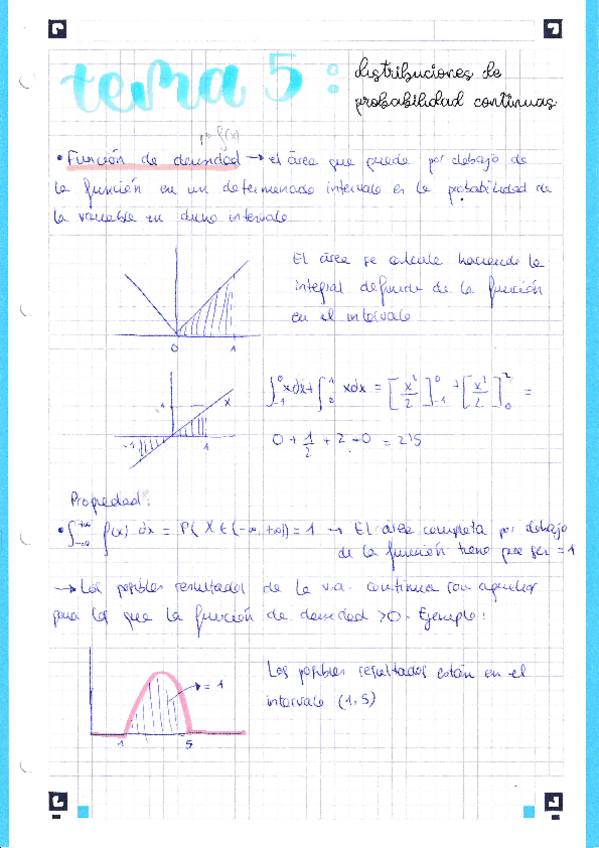 tema 5:
distribuciones de
probabilidad continuas
f(x)
• Función de densidad → el área que queda por debajo de
la función en un determinado intervalo es la probabilidad de
la variable en dicho intervalo
El área se calcula haciendo la
integral definida de la función
en el intervalo
0 1
∫₋₁⁰ xdx + ∫₀¹ xdx = [x²/2]₋₁⁰ + [x²/2]₀² =
1 x
-1 1
0 + 1/2 + 2 - 0 = 2'5
Propiedad:
• ∫₋∞⁺∞ f(x) dx = P(X ∈ (-∞, +∞)) = 1 → El área completa por debajo
de la función tiene que ser = 1
→ Los posibles resultados de la v.a. continua son aquellos
para los que la función de densidad > 0. Ejemplo:
Los posibles resultados están en el
intervalo (1,5)
= 1
1 5